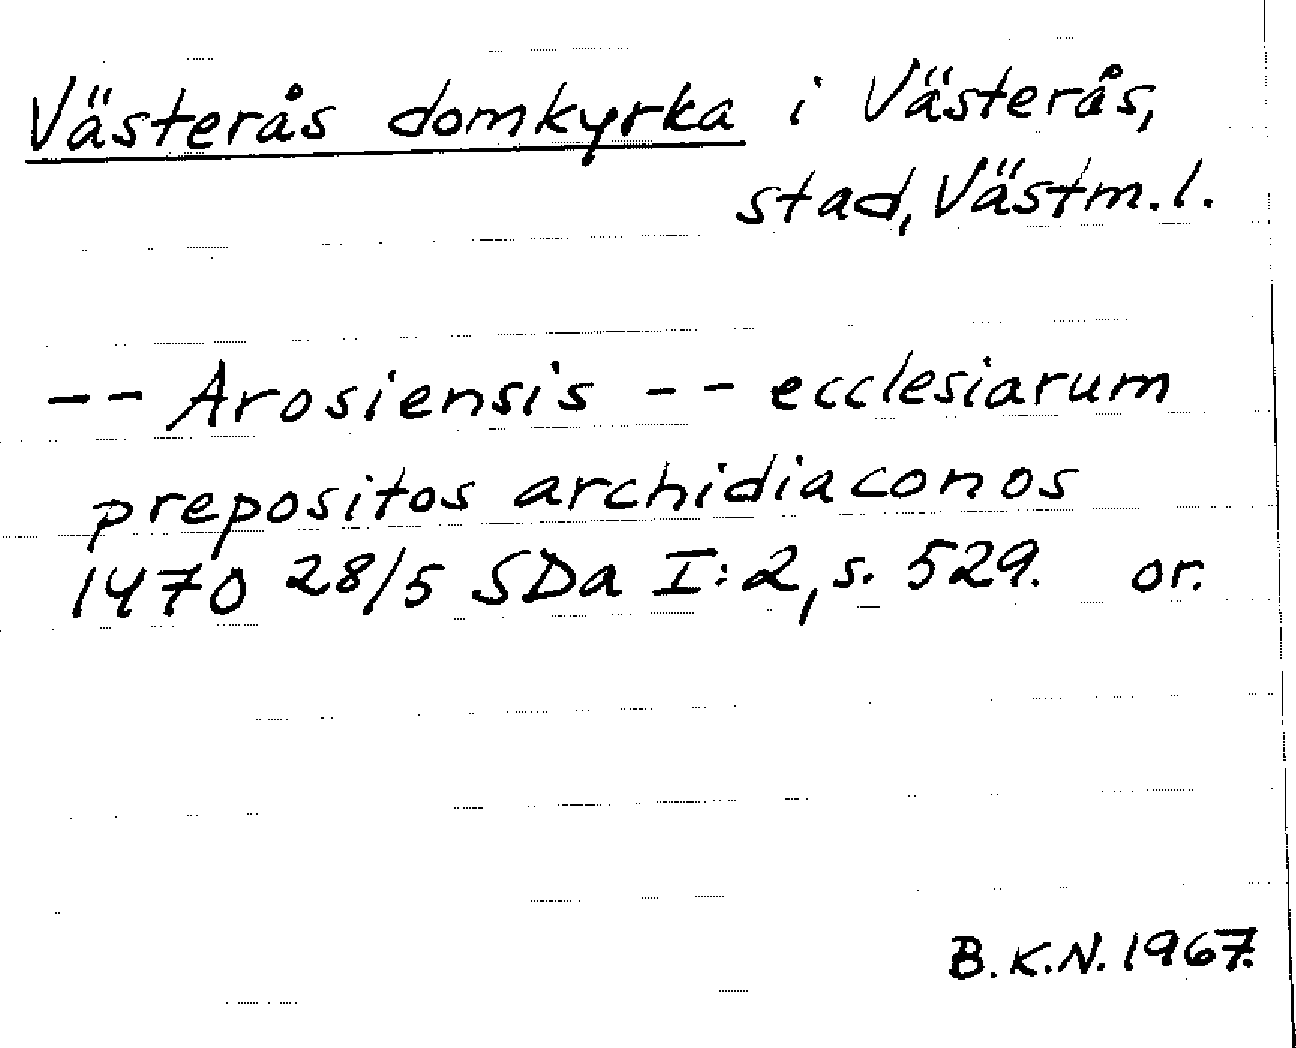 Västerås domkyrka i Västerås,
stad, Västm.l.
-- Arosiensis -- ecclesiarum
prepositos archidiaconos
1470 28/5 SDa I:2, s. 529. or.
B.K.N. 1967.